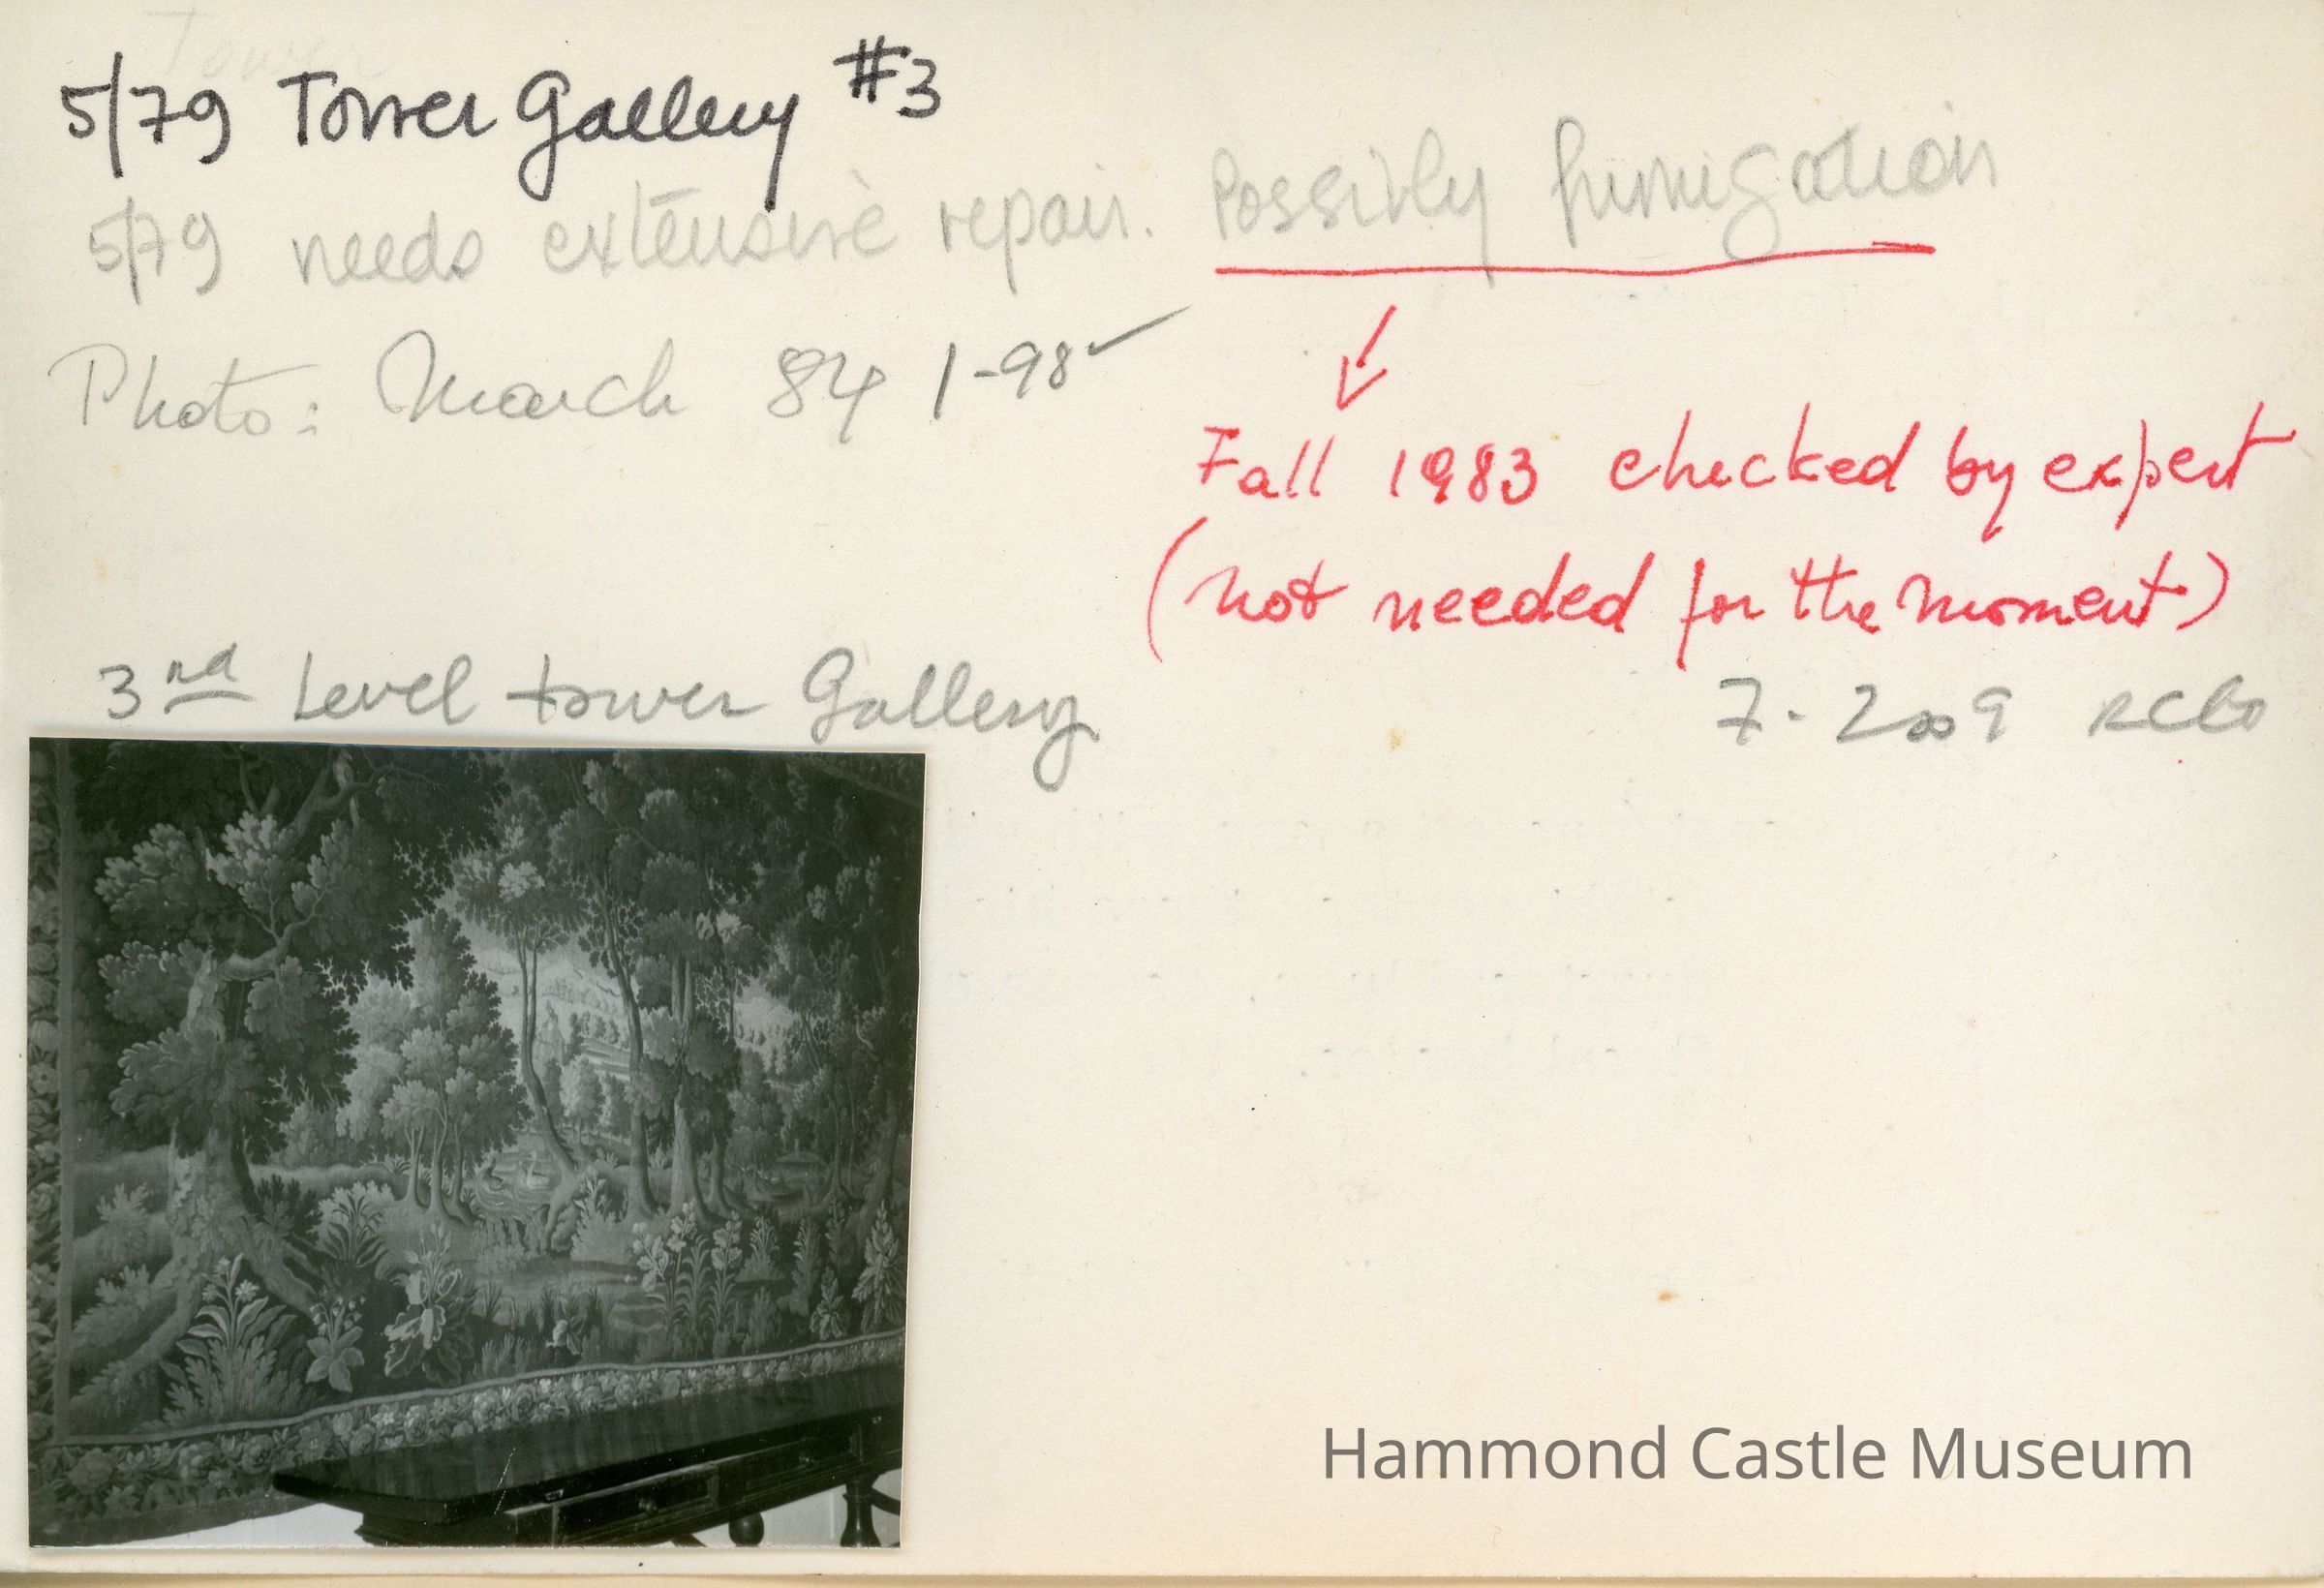 Tower
5/79 Tower Gallery #3
5/79 needs extensive repair. Possibly fumigation
Photo: March 84 1-98 ✓
Fall 1983 checked by expert
(not needed for the moment)
3nd Level tower Gallery
7-2009
Hammond Castle Museum